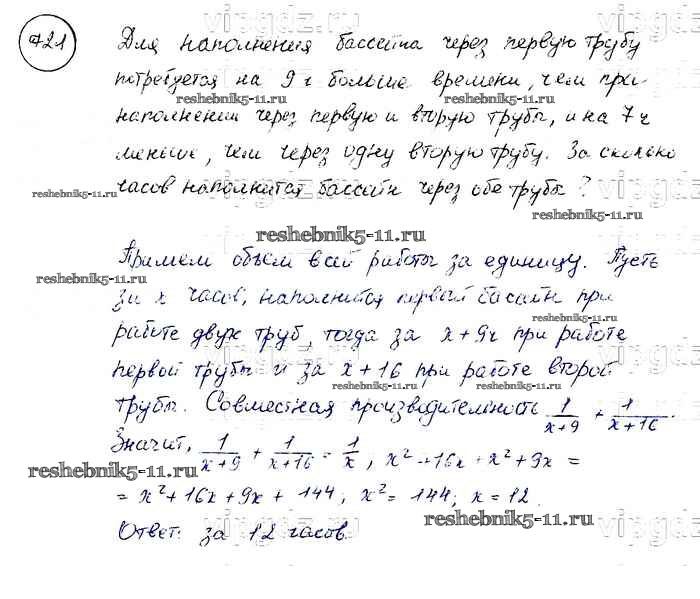 721
Для наполнения бассейна через первую трубу
потребуется на 9 ч больше времени, чем при
наполнении через первую и вторую трубы, и на 7 ч
меньше, чем через одну вторую трубу. За сколько
часов наполнится бассейн через обе трубы?
Примем объем всей работы за единицу. Пусть
за x часов, наполнится первый басейн при
работе двух труб, тогда за x + 9ч при работе
первой трубы и за x + 16 при работе второй
трубы. Совместная производительность 1/(x+9) + 1/(x+16).
Значит, 1/(x+9) + 1/(x+16) = 1/x, x² + 16x + x² + 9x =
= x² + 16x + 9x + 144, x² = 144; x = 12.
Ответ: за 12 часов.
reshebnik5-11.ru
reshebnik5-11.ru
reshebnik5-11.ru
reshebnik5-11.ru
reshebnik5-11.ru
reshebnik5-11.ru
reshebnik5-11.ru
reshebnik5-11.ru
reshebnik5-11.ru
reshebnik5-11.ru
reshebnik5-11.ru
vipgdz